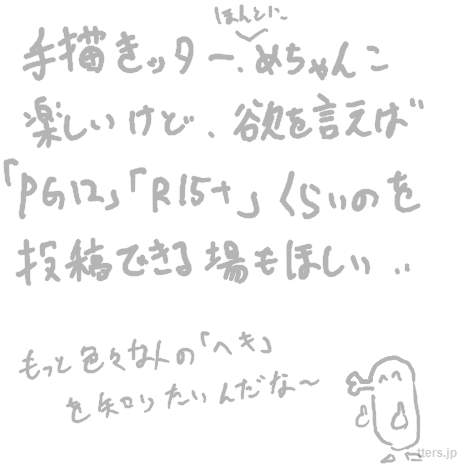 ほんとに
手描きッター、めちゃんこ
楽しいけど、欲を言えば
「PG12」「R15+」くらいのを
投稿できる場もほしい‥
もっと色々な人の「ヘキ」
を知りたいんだな〜